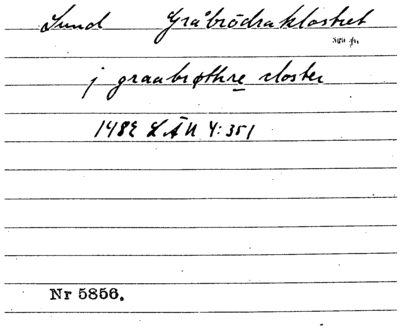 Lund Gråbrödraklostret
j graabrøthre closter
1482 LÄU 4:351
Nr 5856.